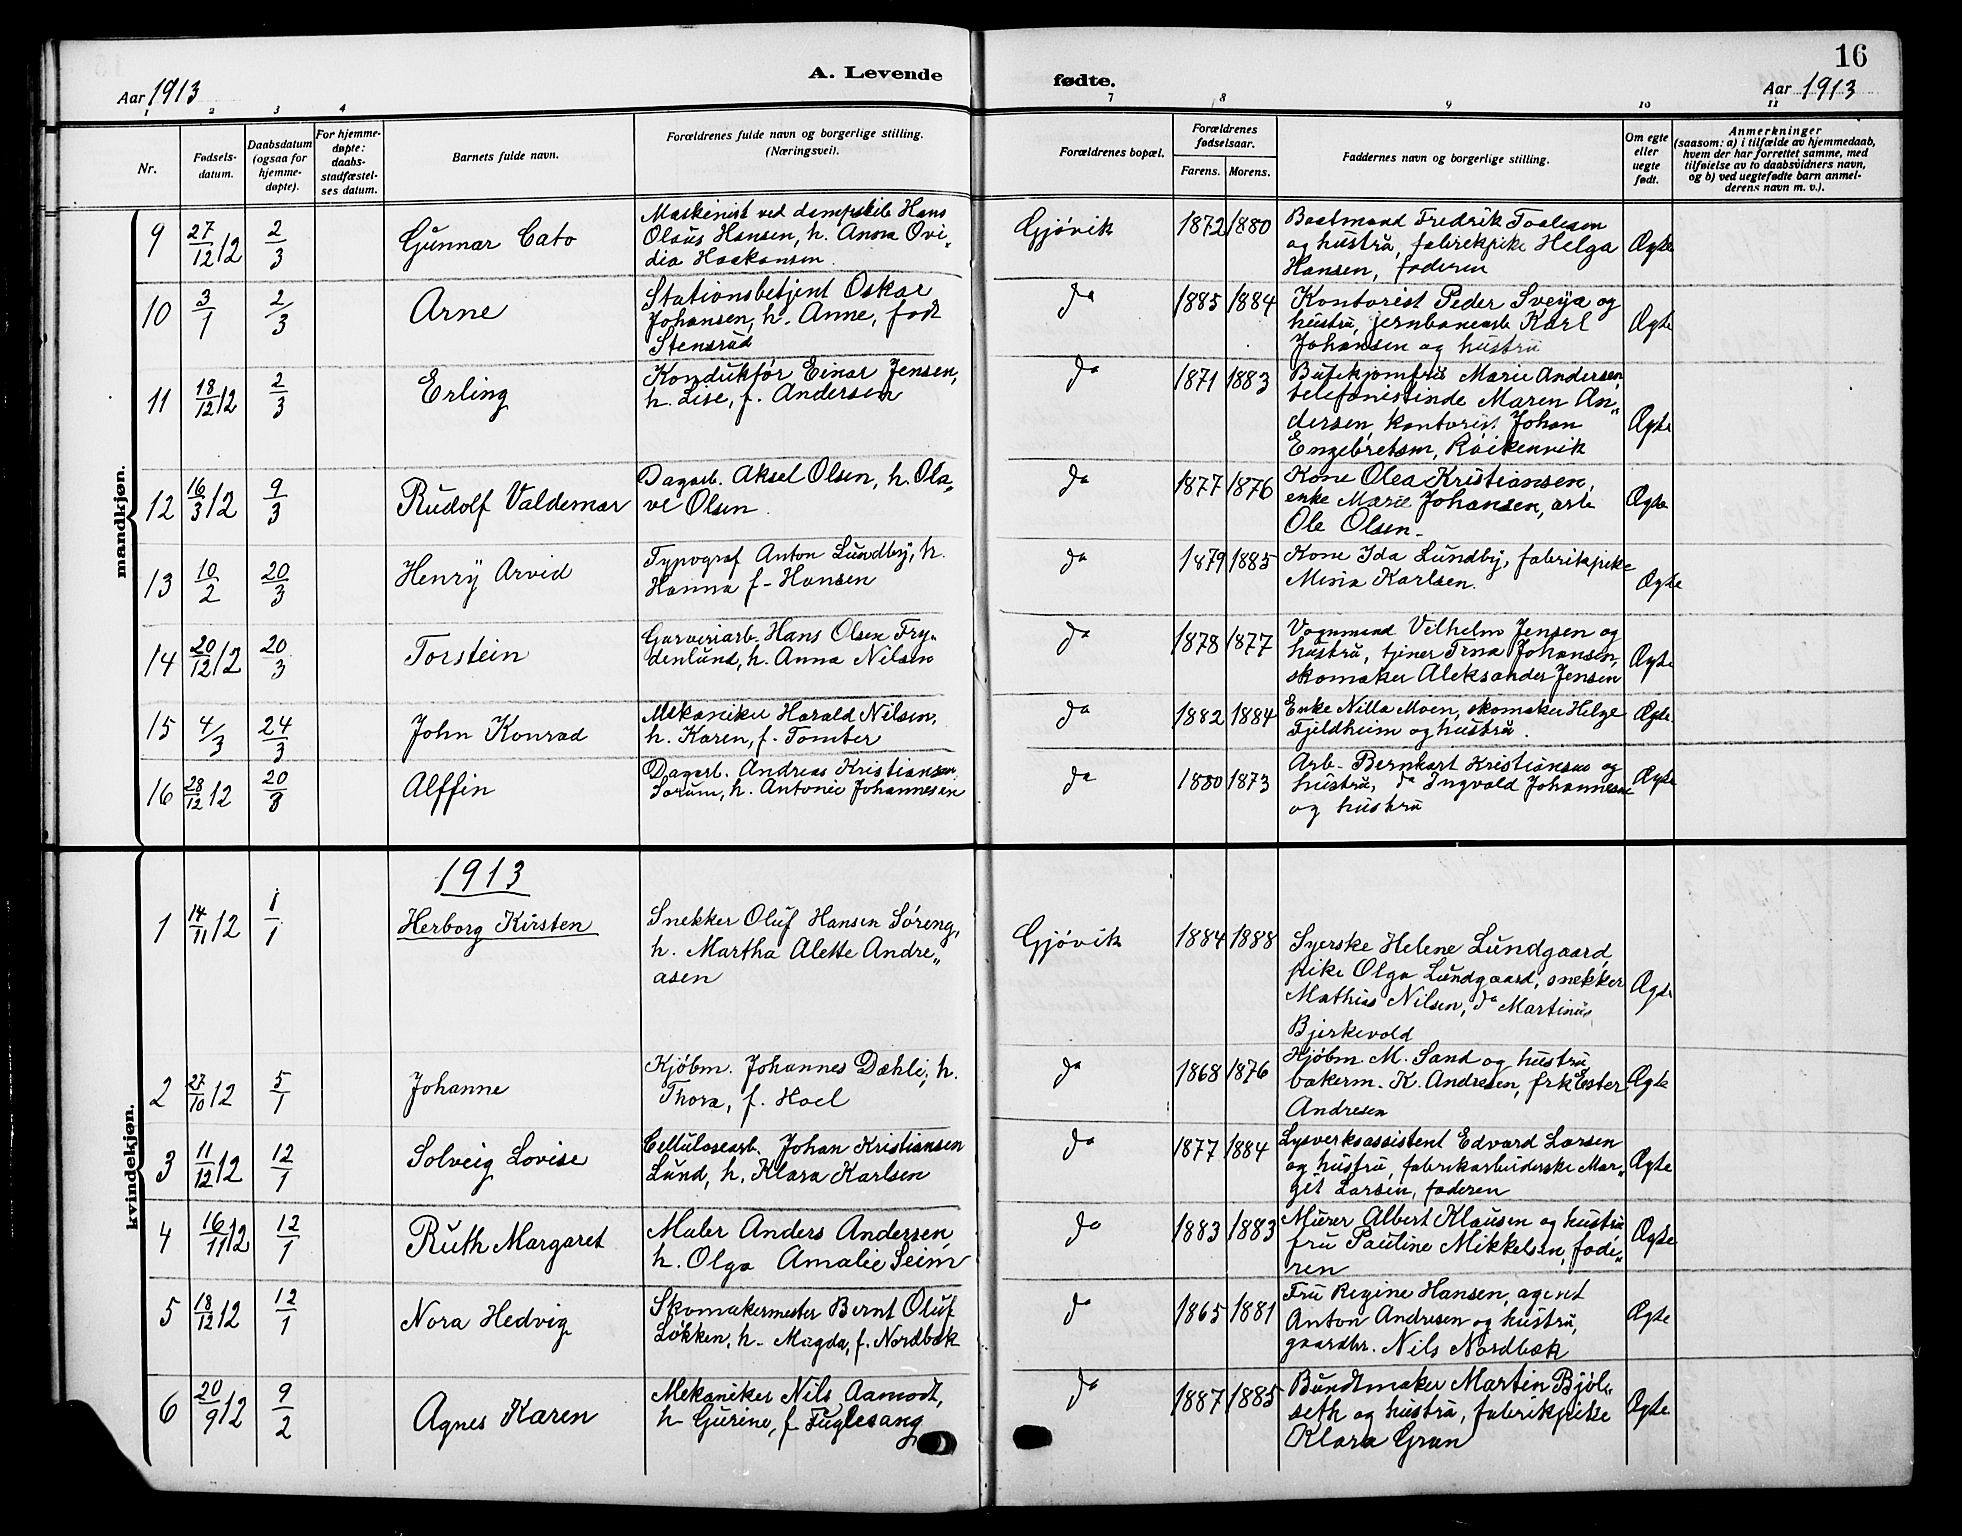 16
A. Levende fødte.
Aar 1913
Aar 1913
1 2 3 4 7 8 9 10 11
Nr.
Fødsels-
datum.
Daabsdatum
(ogsaa for
hjemme-
døpte).
For hjemme-
døpte:
daabs-
stadfæstel-
ses datum.
Barnets fulde navn.
Forældrenes fulde navn og borgerlige stilling.
(Næringsvei).
Forældrenes bopæl.
Forældrenes
fødselsaar.
Farens. Morens.
Faddernes navn og borgerlige stilling.
Om egte
eller
uegte
født.
Anmerkninger
(saasom: a) i tilfælde av hjemmedaab,
hvem der har forrettet samme, med
tilføielse av to daabsvidners navn,
og b) ved uegtefødte barn anmel-
derens navn m. v.).
mandkjøn.
9 27/12 12 2/3 Gunnar Cato
Maskinist ved dampskib Hans
Olaus Hansen, h. Anna Ovi-
dia Haakansen.
Gjøvik 1872 1880
Baatmand Fredrik Toalesen
og hustru, fabrikpike Helga
Hansen, faderen
Ægte
10 3/1 2/3 Arne
Stationsbetjent Oskar
Johansen, h. Anne, født
Stensrud
do 1885 1884
Kontorist Peder Sveya og
hustru, jernbanearb Karl
Johansen og hustru
Ægte
11 18/12 12 2/3 Erling
Konduktør Einar Jensen,
h. Lise, f. Andersen
do 1871 1883
Butikjomfru Marie Andersen,
telefonistinde Maren An-
dersen, kontorist Johan
Engebretsen, Røikenvik
Ægte
12 16/3 12 9/3 Rudolf Valdemar
Dagarb. Aksel Olsen, h. Ola-
ve Olsen.
do 1877 1876
Kone Olea Kristiansen,
enke Marie Johansen, arb
Ole Olsen.
Ægte
13 10/2 20/3 Henry Arvid
Typograf Anton Lundby, h.
Hanna f. Hansen
do 1879 1885
Kone Ida Lundby, fabrikpike
Mina Karlsen.
Ægte
14 20/12 12 20/3 Torstein
Garveriarb. Hans Olsen Fry-
denlund, h. Anna Nilsen
do 1878 1877
Vognmand Vilhelm Jensen og
hustru, tjener Trna Johansen,
skomaker Aleksander Jensen
Ægte
15 4/3 24/3 John Konrad
Mekaniker Harald Nilsen,
h. Karen, f. Tomter
do 1882 1884
Enke Nilla Moen, skomaker Helge
Fjeldheim og hustru.
Ægte
16 28/12 12 20/3 Alffin
Dagarb. Andreas Kristiansen
Sorum, h. Antonie Johannesen
do 1880 1873
Arb. Bernhart Kristiansen og
hustru, do Ingvald Johannesen
og hustru
Ægte
kvindekjøn.
1913
1 14/11 12 1/1 Herborg Kirsten
Snekker Oluf Hansen Søreng,
h. Martha Alette Andre-
asen
Gjøvik 1884 1888
Syerske Helene Lundgaard,
pike Olga Lundgaard, snekker
Mathias Nilsen, do Martinus
Bjerkevold
Ægte
2 27/10 12 5/1 Johanne
Kjøbm. Johannes Dæhli, h.
Thora, f. Hoel
do 1868 1876
Kjøbm. M. Sand og hustru
bakerm. K. Andresen, frk Ester
Andresen
Ægte
3 11/12 12 12/1 Solveig Lovise
Cellulosearb. Johan Kristiansen
Lund, h. Klara Karlsen
do 1877 1884
Lysverksassistent Edvard Larsen
og hustru, fabrikarbeiderske Mar-
git Larsen, faderen
Ægte
4 16/11 12 12/1 Ruth Margaret
Maler Anders Andersen,
h. Olga Amalie Seim
do 1883 1883
Murer Albert Klausen og hustru
fru Pauline Mikkelsen, fade-
ren
Ægte
5 18/12 12 12/1 Nora Hedvig
Skomakermester Bernt Oluf
Løkken, h. Magda, f. Nordbæk
do 1865 1881
Fru Regine Hansen, agent
Anton Andresen og hustru,
gaardbr. Nils Nordbæk
Ægte
6 20/9 12 9/2 Agnes Karen
Mekaniker Nils Aamodt,
h. Gurine, f. Fuglesang
do 1887 1885
Bundtmaker Martin Bjøl-
seth og hustru, fabrikpike
Klara Gran
Ægte